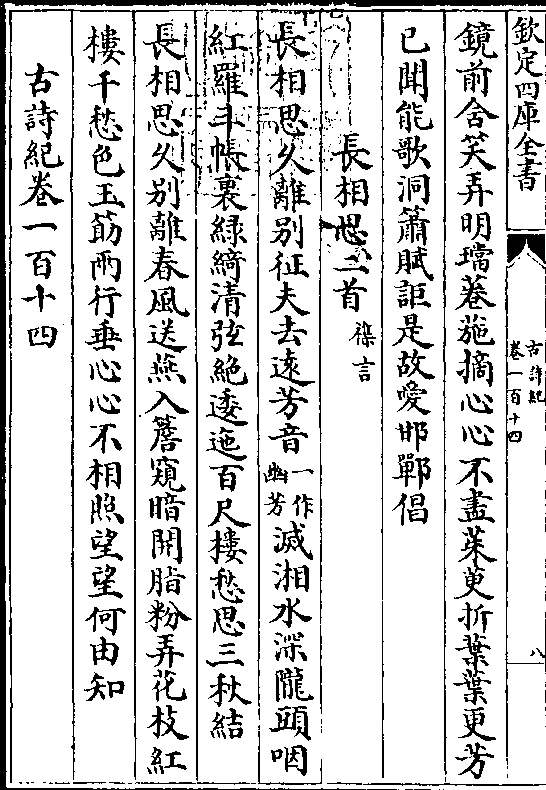 欽定四庫全書
古詩紀
卷一百十四
八
鏡前含笑弄明璫葹摘心心不盡茱萸折葉葉更芳
已聞能歌洞簫賦詎是故愛邯鄲倡
長相思二首
雜言
長相思久離別征夫去遠芳音一作幽芳滅湘水深隴頭咽
紅羅斗帳裏緑綺清弦絶逶迤百尺樓愁思三秋結
長相思久别離春風送燕入簷窺暗開脂粉弄花枝紅
樓千愁色玉筯兩行垂心心不相照望望何由知
古詩紀卷一百十四